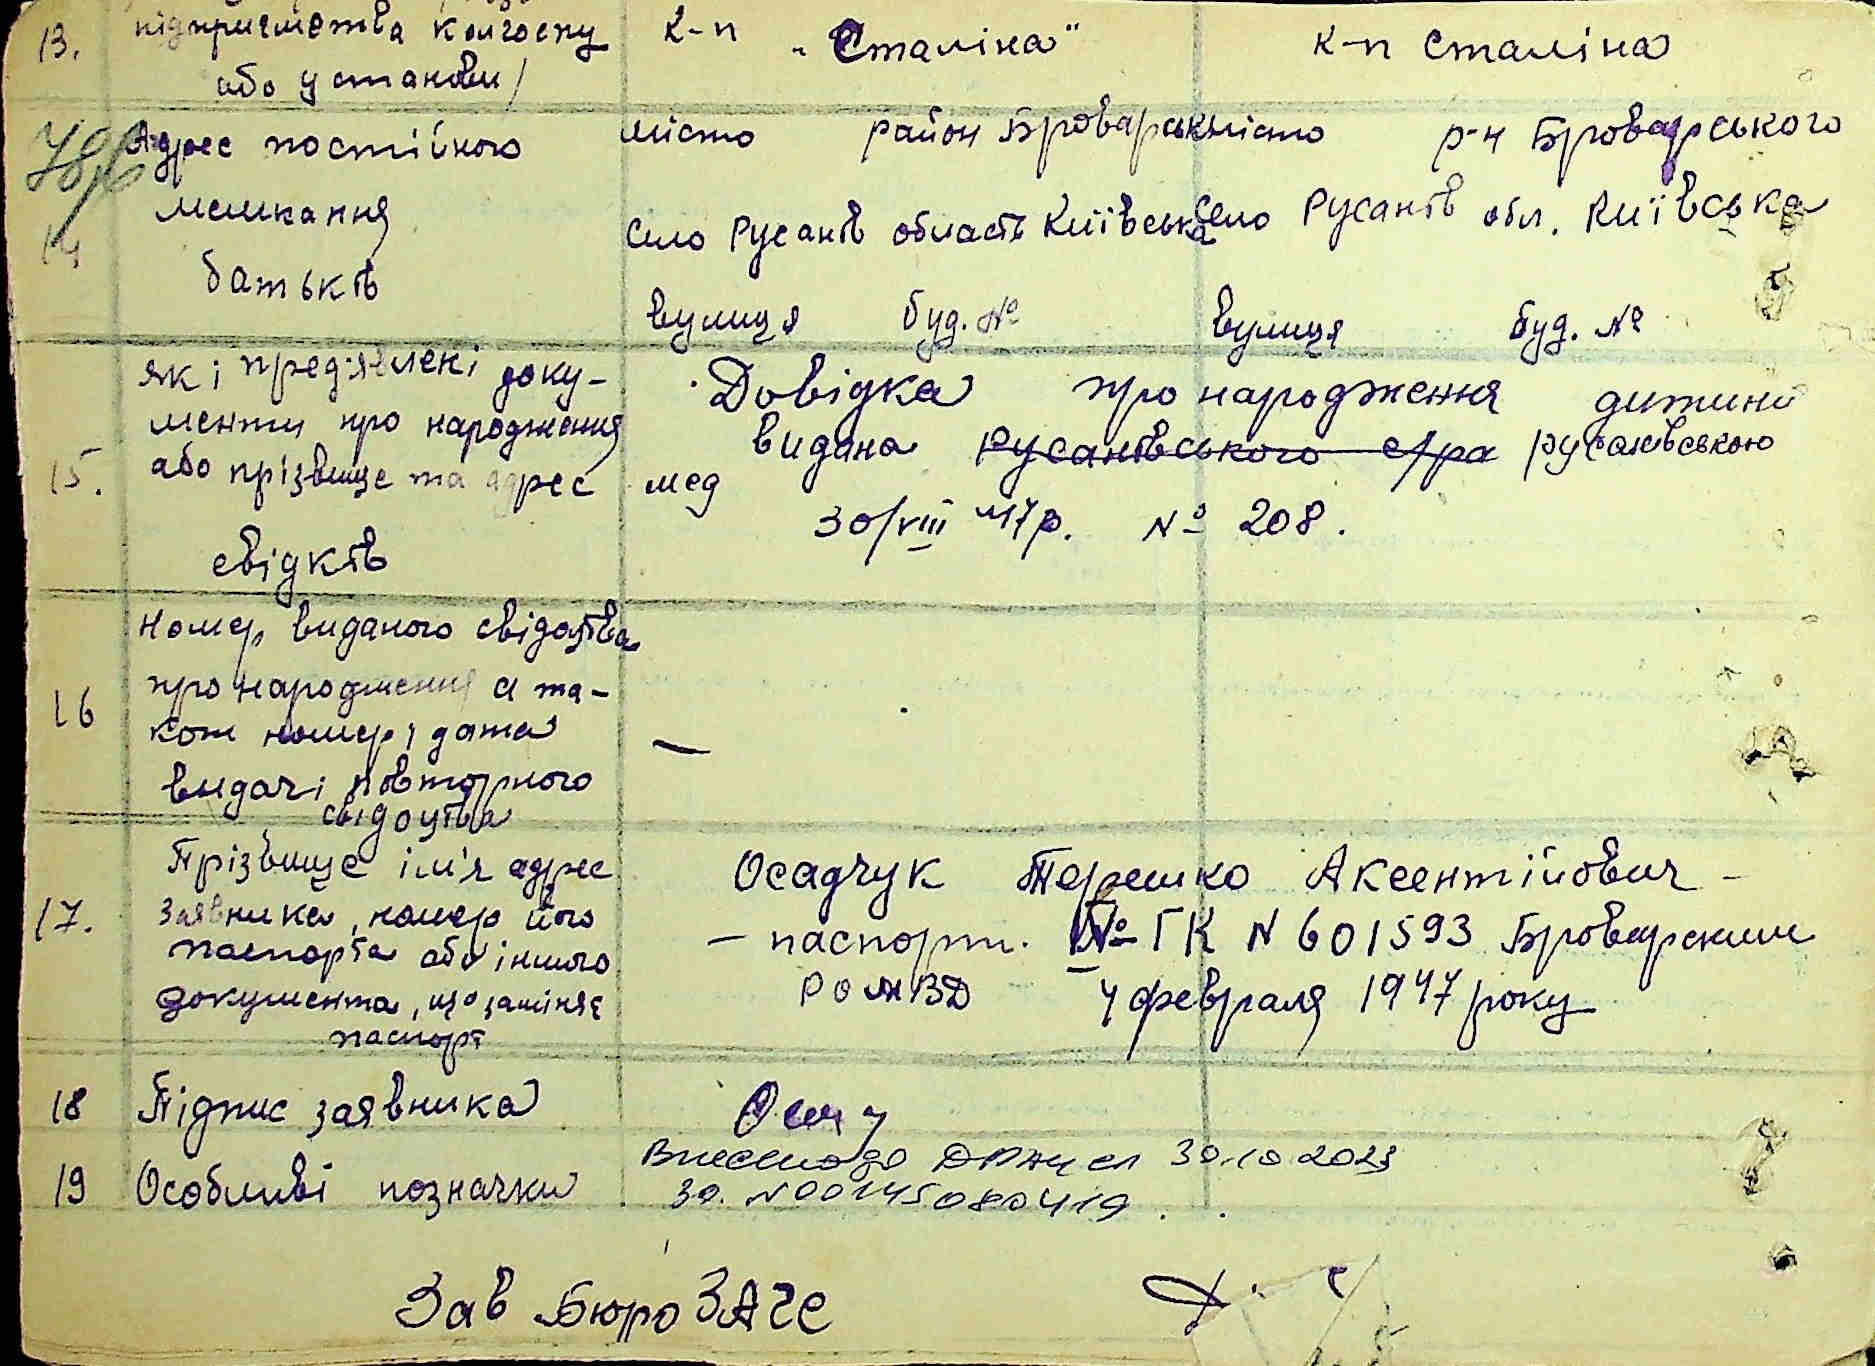 13. підприємства колгоспу к-п „Сталіна" к-п Сталіна
або установи/
Адрес постійного місто район Броварськ місто р-н Броварського
14 мешкання село Русанів область Київська село Русанів обл. Київська
батьків
вулиця буд. № вулиця буд. №
які пред'явлені доку- Довідка про народження дитини
менти про народження видана Русанівського с/ра Русанівською
15. або прізвище та адрес мед
свідків 30/VIII 47р. № 208.
Номер виданого свідоцтва
про народження а та-
16 кож номер і дата —
видачі повторного
свідоцтва
Прізвище ім'я адрес Осадчук Терешко Аксентійович –
17. заявника, номер його – паспорт. № ГК N 601593 Броварским
паспорта або іншого
документа, що заміняє РО МВД 4 февраля 1947 року
паспорт
18 Підпис заявника Осад
Внесено до ДРАЦСГ 30.10.2023
19 Особливі позначки за. N00145080419.
Зав Бюро ЗАГС